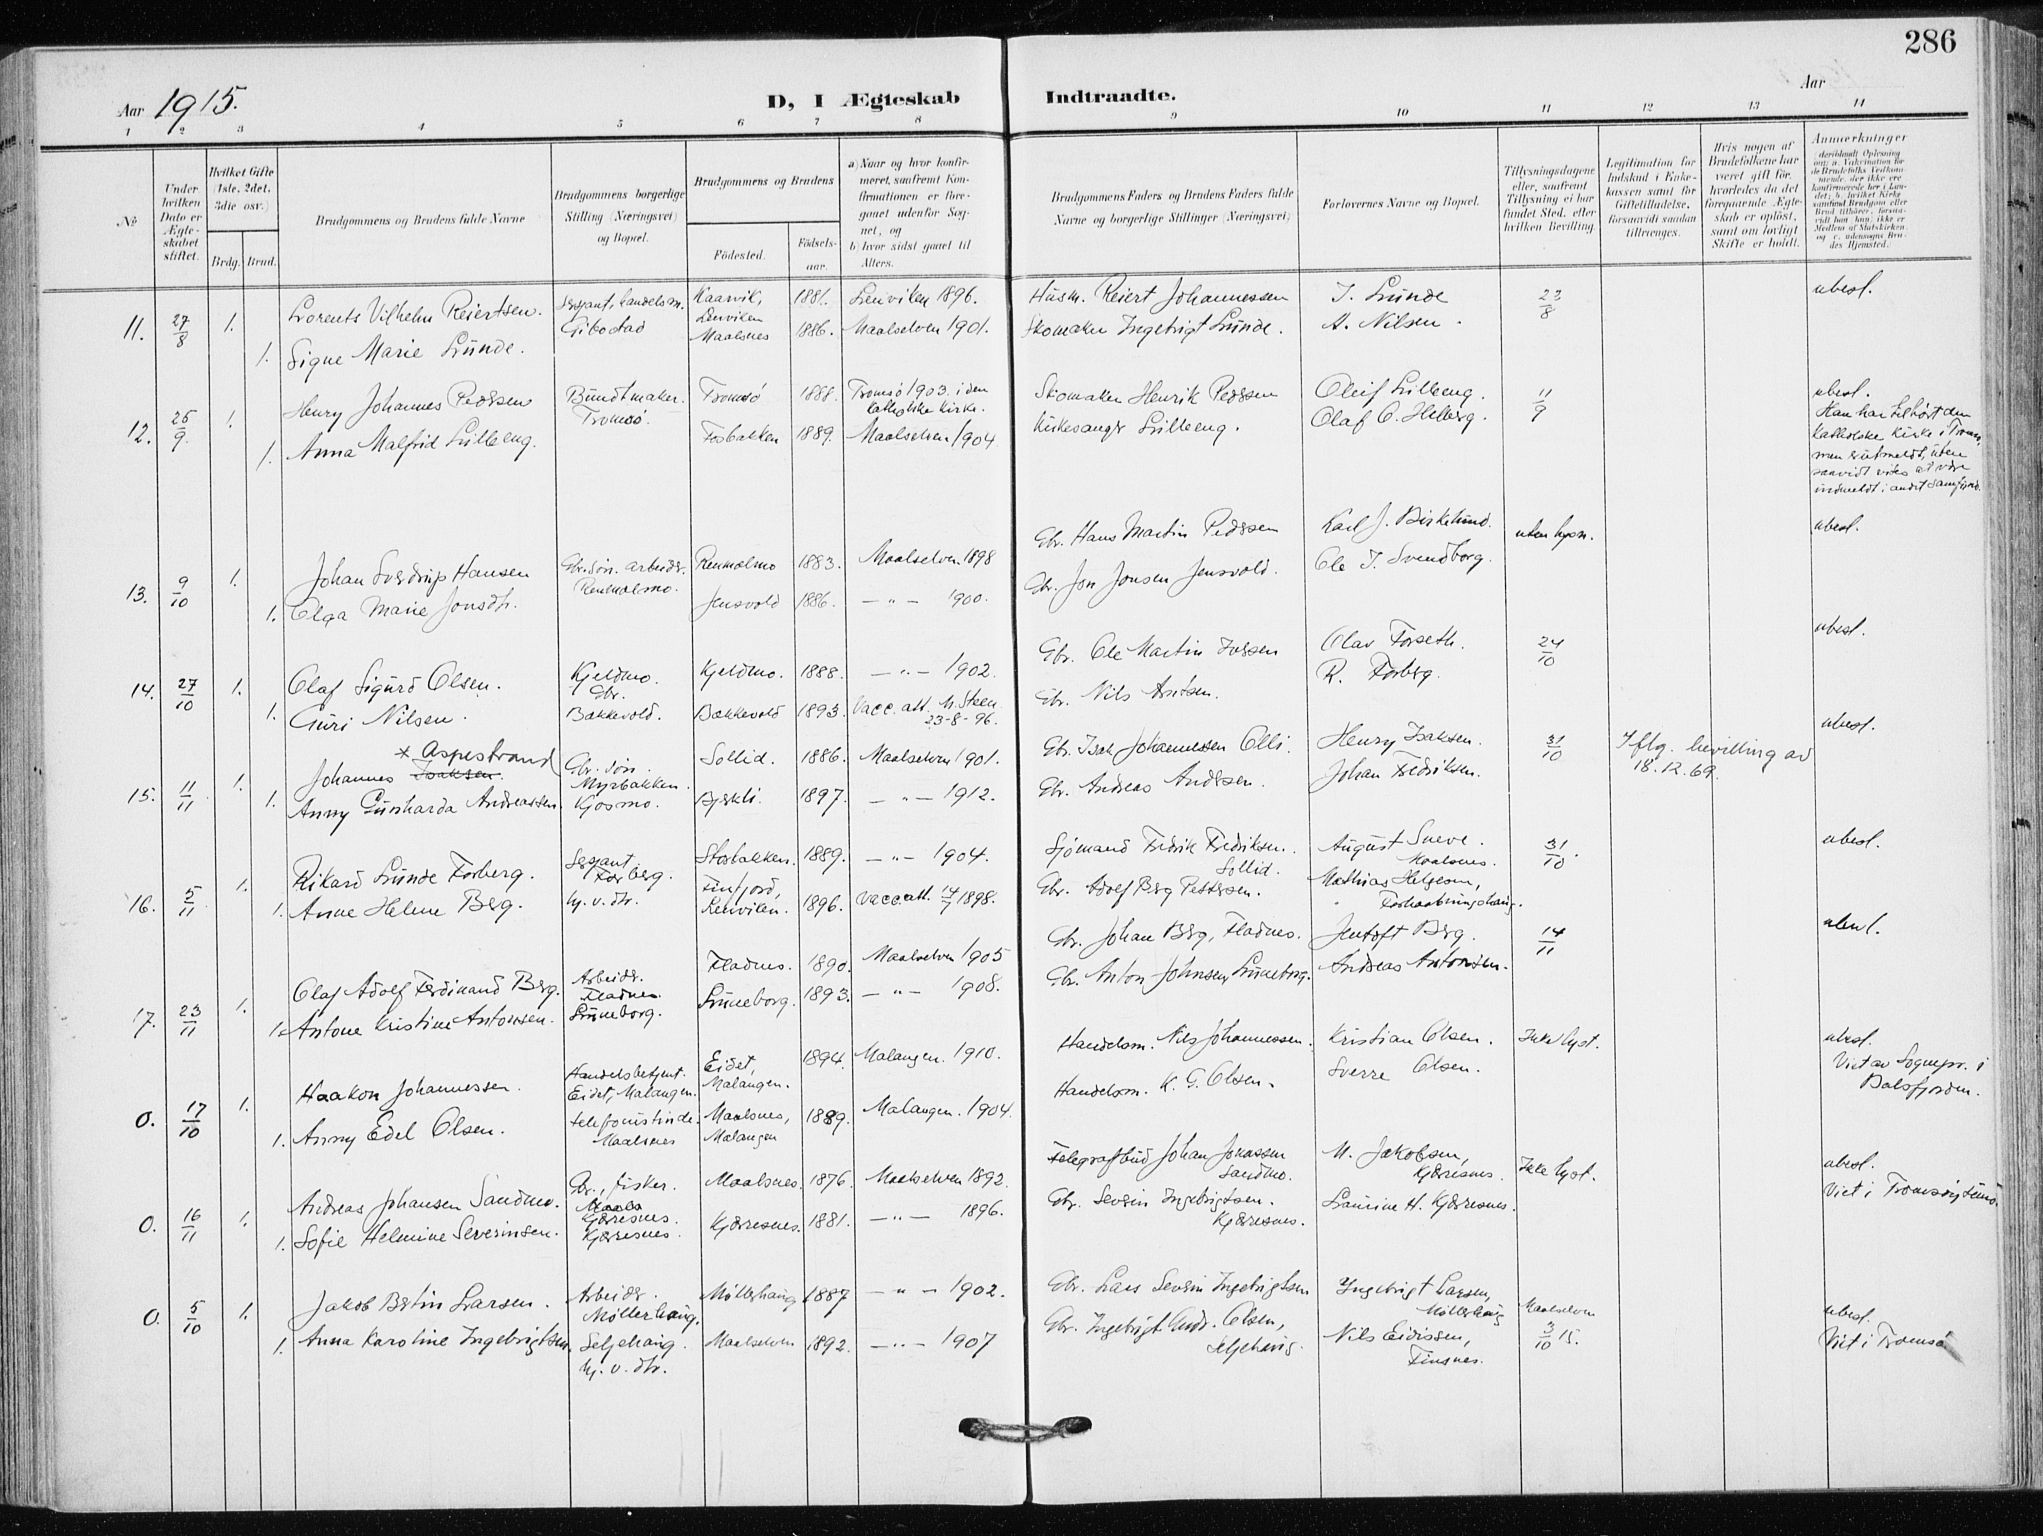 286
Aar 1915.
D, I Ægteskab Indtraadte.
Aar
1 2 3 4 5 6 7 8 9 10 11 12 13 14
№
Under hvilken Dato er Ægteskabet stiftet.
Hvilket Gifte (1ste, 2det, 3die osv.)
Brdg. Brud.
Brudgommens og Brudens fulde Navne
Brudgommens borgerlige Stilling (Næringsvei) og Bopæl.
Brudgommens og Brudens
Fødested.
Fødsels-aar.
a) Naar og hvor konfirmeret, saafremt Konfirmationen er foregaaet udenfor Sognet, og
b) hvor sidst gaaet til Alters.
Brudgommens Faders og Brudens Faders fulde Navne og borgerlige Stillinger (Næringsvei)
Forlovernes Navne og Bopæl.
Tillysningsdagene eller, saafremt Tillysning ei har fundet Sted, efter hvilken Bevilling.
Legitimation for Indskud i Enkekassen samt for Giftetilladelse, forsaavidt saadan tiltrænges.
Hvis nogen af Brudefolkene har været gift før, hvorledes da det foregaaende Ægteskab er opløst, samt om lovligt Skifte er holdt.
Anmerkninger
11. 27/8 1. Lorents Vilhelm Reiertsen. Sersjant, handelsm. Gibostad Kaarvik, Lenviken 1881. Lenviken 1896. Husm. Reiert Johannessen J. Lunde 23/8 ubesl.
1. Signe Marie Lunde. Maalsnes 1886. Maalselven 1901. Skomaker Ingebrigt Lunde. A. Nilsen.
12. 25/9 1. Henry Johannes Pedersen Bundtmaker. Tromsø. Tromsø 1888. Tromsø 1903 i den katholske kirke. Skomaker Henrik Pedersen Oleif Lilleeng. 11/9 ubesl.
1. Anna Malfrid Lilleeng. Fosbakken 1889. Maalselven 1904 Kirkesanger Lilleeng. Olaf O. Helberg.
Han har tilhørt den
katholske kirke i Tromsø,
men er utmeldt, uten
saavidt vites at være
indmeldt i andet samfund.
13. 9/10 1. Johan Sverdrup Hansen Gbr. søn. arbeider. Renmolmo. Renmolmo 1883. Maalselven 1898 Gbr. Hans Martin Pedersen Karl J. Birkelund. uten lysn. ubesl.
1. Olga Marie Jonsdtr. Jensvold 1886. — „ — 1900. Gbr. Jon Jonsen Jensvold. Ole J. Svendborg.
14. 27/10 1. Olaf Sigurd Olsen. Kjeldmo. Gbr. Kjeldmo. 1888. — „ — 1902. Gbr. Ole Martin Iversen Olav Forseth. 24/10 ubesl.
1. Guri Nilsen. Bakkevold. Bakkevold 1893. Vacc. att. M. Steen 23-8-96. Gbr. Nils Arntsen. R. Forberg.
* Aspestrand
15. 11/11 1. Johannes Isaksen Gbr. søn. Myrbakken. Sollid. 1886. Maalselven 1901. Gbr. Isak Johannessen Olli. Henry Isaksen. 31/10 Iflg. bevilling av 18.12.69. ubesl.
1. Anny Gunharda Andreassen. Kjosmo. Bjerkli. 1897. — „ — 1912. Gbr. Andreas Andersen. Johan Fredriksen.
16. 5/11 1. Rikard Lunde Forberg. Sersjant Forberg. Storbakken. 1889. — „ — 1904. Sjömand Fredrik Fredriksen. Sollid. August Sneve. Maalsnes. 31/10. ubesl.
1. Anne Helene Berg. hj. v. dtr. Finfjord, Lenviken. 1896. Vacc. att. 14/7 1898. Gbr. Adolf Berg Pettersen. Mathias Helgesen,
17. 23/11 1. Olaf Adolf Ferdinand Berg. Arbeider. Fladnes. Fladnes. 1890. Maalselven 1905 Gbr. Johan Berg, Fladnes. Jentoft Berg. 14/11 ubesl.
1. Antone Kristine Antonsen. Luneborg. Luneborg. 1893. — „ — 1908. Gbr. Anton Johnsen Luneborg. Andreas Antonsen.
0. 17/10 1. Haakon Johannessen. Handelsbetjent. Eidet, Malangen. Eidet, Malangen. 1894. Malangen. 1910. Handelsm. Nils Johannessen. Kristian Olsen. Ikke lyst. ubesl.
1. Anny Edel Olsen. telefonistinde. Maalsnes Maalsnes, Malangen 1889. Malangen. 1904. Handelsm. K. G. Olsen. Sverre Olsen.
Viet av Sognepr. i
Balsfjorden.
0. 16/11 1. Andreas Johansen Sandmo. Gbr., fisker. Kjærresnes. Maalsnes. 1876. Maalselven 1892. Telegrafbud Johan Jonassen Sandmo. M. Jakobsen, Kjærresnes. Ikke lyst. ubesl.
1. Sofie Helmine Severinsen. Kjærresnes. Kjærresnes. 1881. — „ — 1896. Gbr. Severin Ingebrigtsen. Kjærresnes. Laurine H. Kjærresnes.
Viet i Tromsøysund.
0. 5/10 1. Jakob Bertin Larsen. Arbeider. Møllerhaug. Møllerhaug 1887 — „ — 1902. Gbr. Lars Severin Ingebrigtsen Ingebrigt Larsen, Møllerhaug Maalselven 3/10 15. ubesl.
1. Anna Karoline Ingebrigtsen. Seljehaug. hj. v. dtr. Maalselven 1892. — „ — 1907 Gbr. Ingebrigt And. Olsen, Seljehaug. Nils Eidissen, Finsnes.
Viet i Tromsø